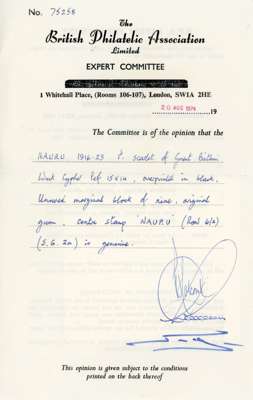 No. 75258
The
British Philatelic Association
Limited
EXPERT COMMITTEE
1 Whitehall Place, (Rooms 106-107), London, SW1A 2HE
20 AUG 1974 19
The Committee is of the opinion that the
NAURU 1916-23 1d. scarlet of Great Britain
Wmk Cypher Perf 15x14, overprinted in black.
Unused marginal block of nine, original
gum, centre stamp 'NAURU' (Row 6/2)
(S.G. 2a) is genuine.
This opinion is given subject to the conditions
printed on the back thereof